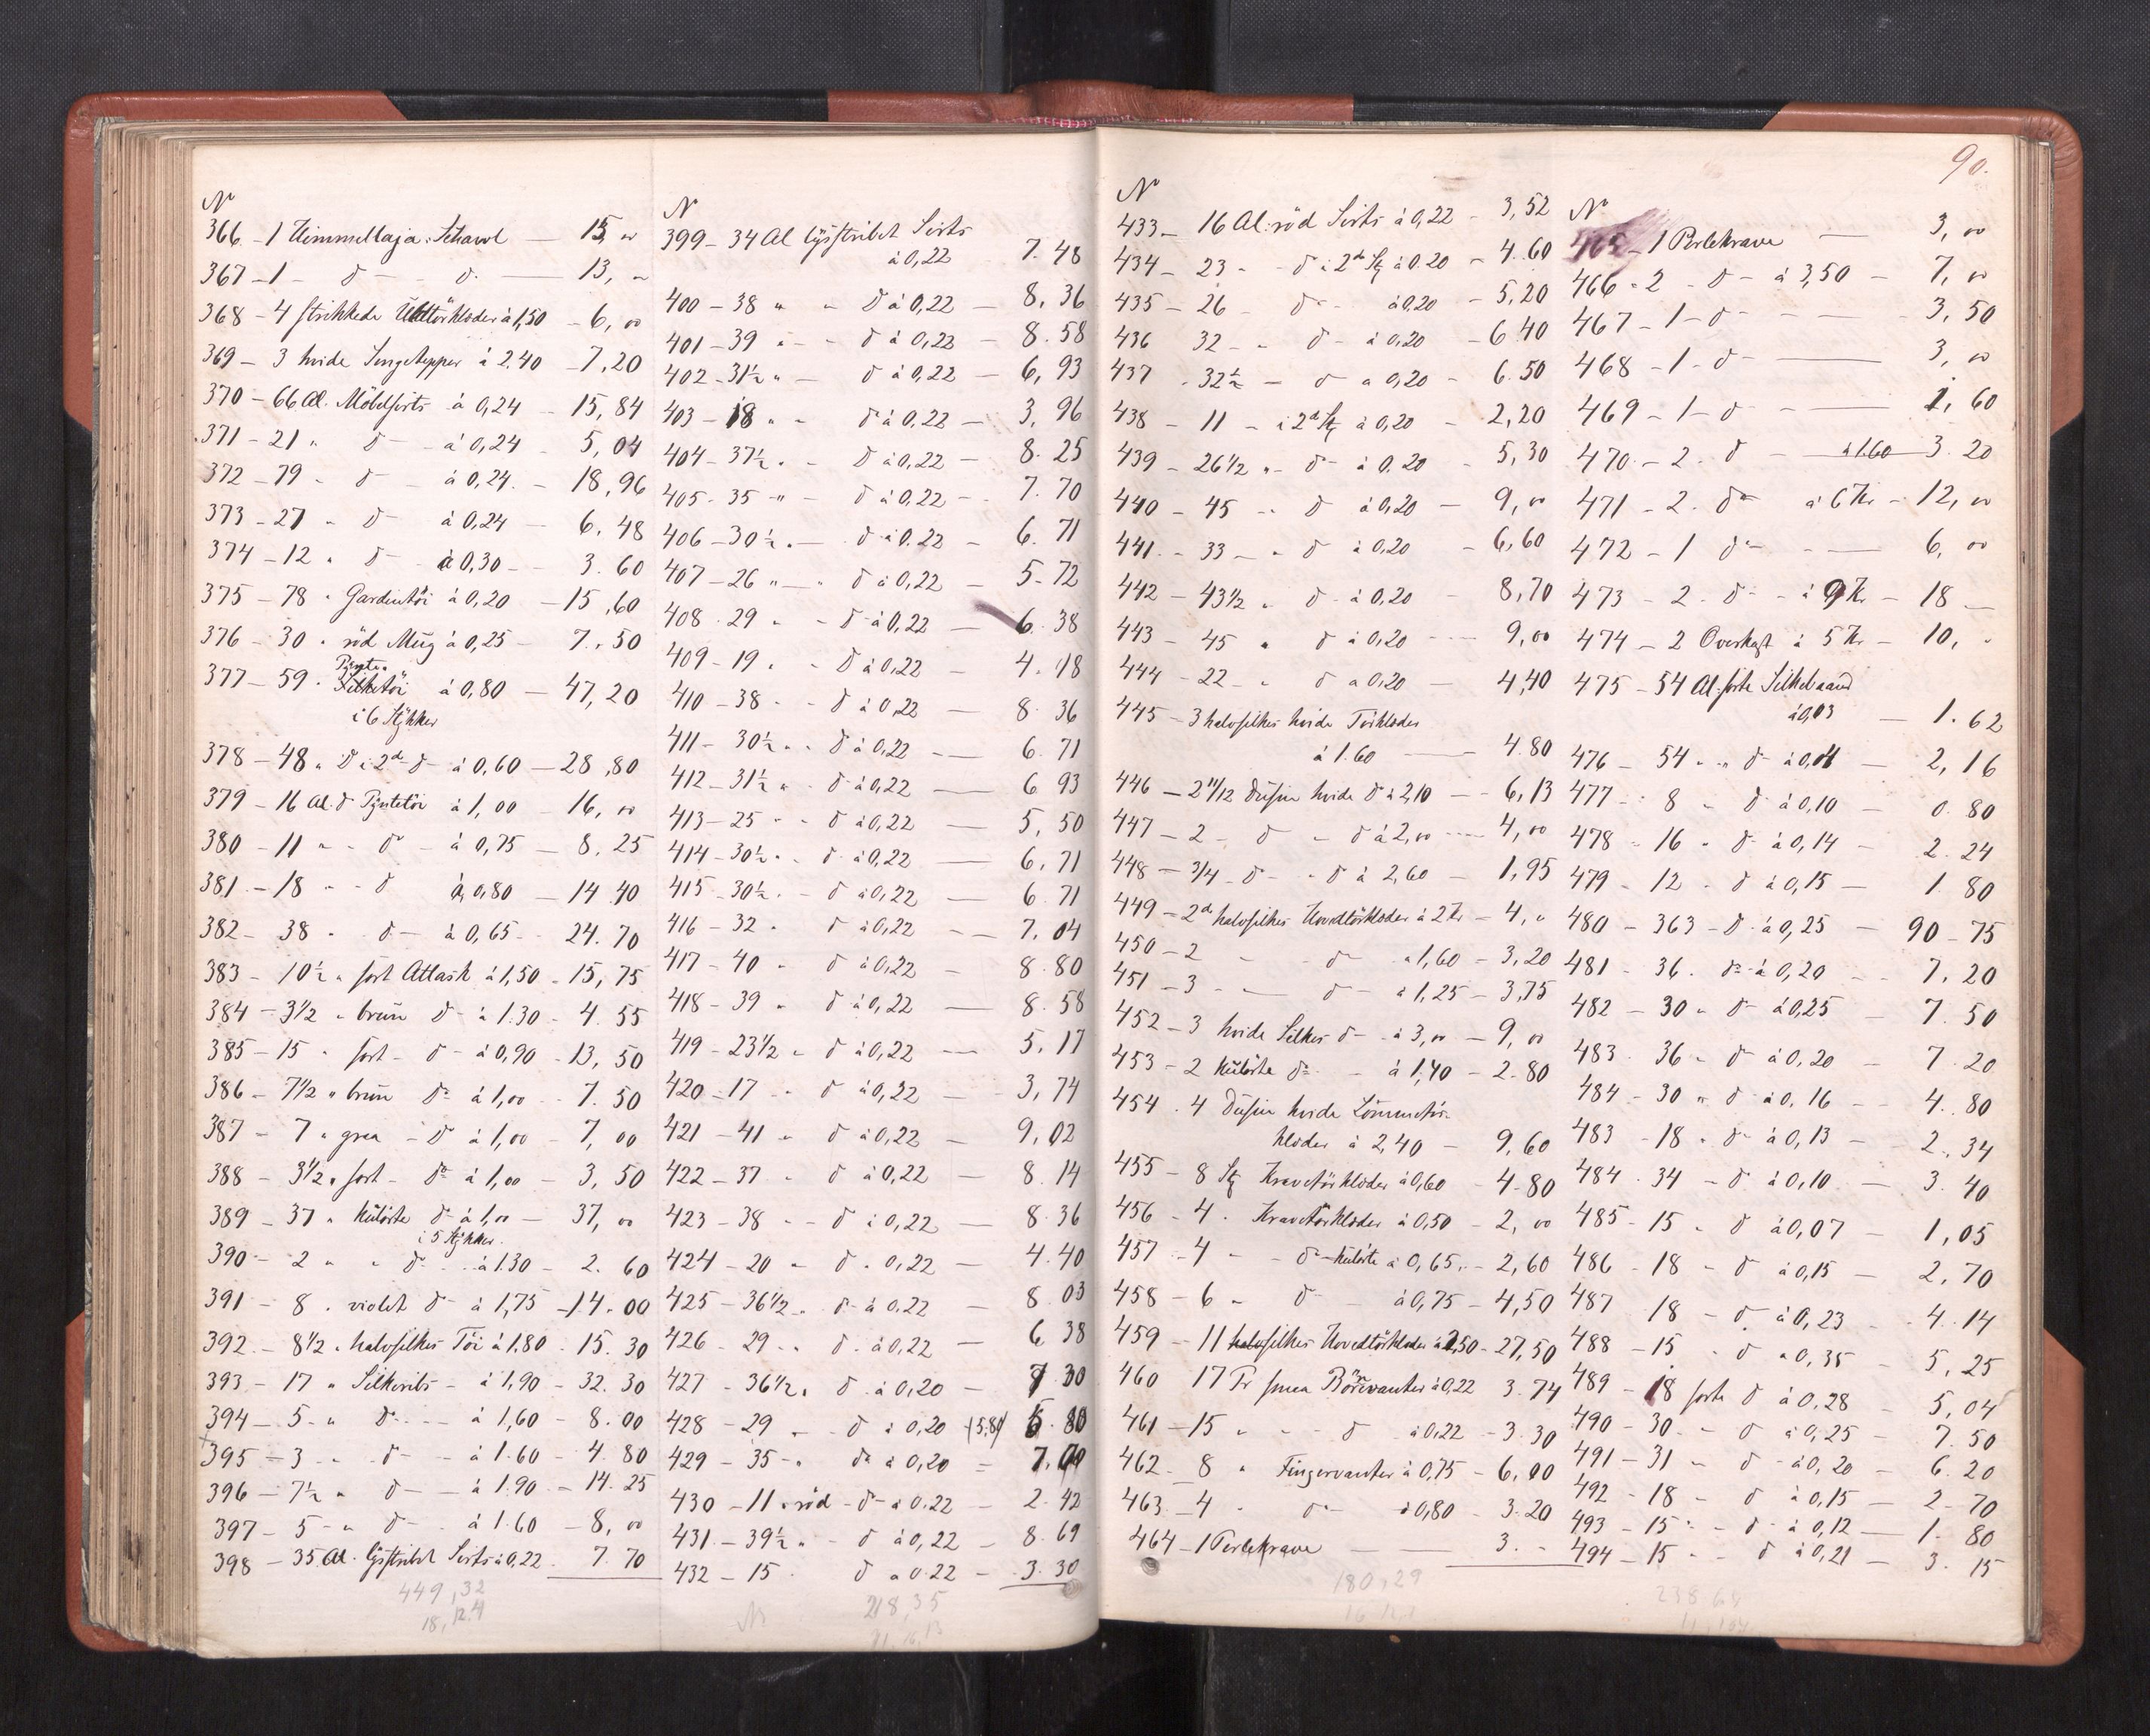 N
366 - 1 Himmellaja: Schavl - 15, "
367 - 1 - d - d. - 13, "
368 - 4 strikkede Uldtörklæder à 1,50 - 6, 00
369 - 3 hvide Sengetepper à 2.40 - 7,20
370 - 66 Al. Möbelsirts à 0,24 - 15,84
371 - 21 " d - à 0,24 - 5,04
372 - 79 - d - à 0,24. - 18,96
373 - 27 " d - à 0,24 - 6,48
374 - 12 " d - à 0,30 - 3.60
375 - 78 " Gardintöi à 0,20 - 15,60
376 - 30 " röd Müg à 0,25 - 7.50
Pynte
377 - 59 " Silketöi à 0,80 - 47,20
i 6 Stykker
378 - 48 " D i 2de d - à 0,60 - 28,80
379 - 16 Al. d Pyntetöi à 1,00 - 16, 00
380 - 11 " - d - à 0,75 - 8.25
381 - 18 " - d à 0,80 - 14.40
382 - 38 " d - à 0,65 - 24.70
383 - 10½ " sort Atlask à 1,50 - 15,75
384 - 3½ " brün d - à 1.30 - 4.55
385 - 15 " sort - d - à 0,90 - 13,50
386 - 7½ " brün d - à 1,00 - 7.50
387 - 7 " graa - d à 1,00 - 7,00
388 - 3½ " sort - d à 1,00 - 3,50
389 - 37 " külörte d à 1,00 - 37, 00
i 5 Stykker
390 - 2 " " d - à 1.30 - 2.60
391 - 8 " violet d à 1,75 - 14.00
392 - 8½ " halvsilkes Töi à 1.80 - 15.30
393 - 17 " Silkerips - à 1,90 - 32.30
394 - 5 " d - à 1,60 - 8.00
395 - 3 " d - à 1.60 - 4.80
396 - 7½ " d - à 1.90 - 14.25
397 - 5 - " d - à 1.60 - 8, 00
398 - 35 Al. lysstribet Sirts à 0,22 - 7.70
449,32
N
399 - 34 Al lysstribet Sirts
à 0,22 7.48
400 - 38 " " d à 0,22 - 8.36
401 - 39 " - d à 0,22 - 8.58
402 - 31½ " - d à 0,22 - 6,93
403 - 18 " - d à 0,22 - 3,96
404 - 37½ " - d à 0,22 - 8.25
405 - 35 " - d à 0,22 - 7.70
406 - 30½ " - d à 0.22 - 6.71
407 - 26 " - d à 0,22 - 5-72
408 - 29 " - d à 0,22 - 6.38
409 - 19 " - d à 0,22 - 4.18
410 - 38 " - d à 0,22 - 8.36
411 - 30½ " - d à 0,22 - 6.71
412 - 31½ " - d à 0,22 - 6.93
413 - 25 " - d à 0,22 - 5,50
414 - 30½ " - d à 0,22 - 6,71
415 - 30½ " - d à 0,22 - 6.71
416 - 32 " d à 0,22 - 7.04
417 - 40 " d à 0,22 - 8.80
418 - 39 " d à 0,22 - 8.58
419 - 23½ " d à 0,22 - 5.17
420 - 17 " d à 0,22 - 3,74
421 - 41 " d à 0,22 - 9,02
422 - 37 " d à 0,22 - 8.14
423 - 38 " - d à 0,22 - 8.36
424 - 20 " d " 0,22 - 4.40
425 - 36½ " d à 0.22 - 8.03
426 - 29 " d à 0,22 - 6.38
427 - 36½ " d à 0,20 - 7.30
428 - 29 " - d à 0,20 (5,80) 5.80
429 - 35 " d à 0,20 - 7.00
430 - 11 " röd - d - à 0.22 - 2.42
431 - 39½ " - d à 0,22 - 8.69
432 - 15 " d à 0.22 - 3.30
218,35
90.
N
433 - 16 Al. röd Sirts à 0,22 - 3,52
434 - 23 " - d i 2de St à 0.20 - 4.60
435 - 26 - d à 0.20 - 5,20
436 32 - " d - à 0,20 - 6.40
437 - 32½ - d à 0,20 - 6.50
438 - 11 - i 2de St à 0,20 - 2,20
439 - 26½ " - d à 0.20 - 5,30
440 - 45 " d à 0,20 - 9,00
441 - 33 - " d à 0,20 - 6,60
442 - 43½ " d - à 0,20 - 8,70
443 - 45 " d à 0,20 - 9,00
444 - 22 - " d à 0,20 - 4,40
445 - 3 halvsilkes hvide Törklæder
à 1.60 - 4.80
446 - 2 11/12 Düsin hvide d à 2,10 - 6,13
447 - 2 - d - d à 2,00 - 4,00
448 - 3/4 - d - d à 2,60 - 1,95
449 - 2de halvsilkes Hovedtörklæder à 2 Kr - 4, "
450 - 2 - d à 1,60 - 3,20
451 - 3 - d - à 1,25 - 3,75
452 - 3 hvide Silkes d - à 3,00 - 9, 00
453 - 2 külörte d - à 1,40 - 2.80
454 . 4 Düsin hvide Lommetör-
klæder à 2,40 - 9,60
455 - 8 St Kravetörklæder à 0,60 - 4.80
456 - 4 . Kravetörklæder à 0,50 - 2, 00
457 - 4 - d - külörte à 0,65 - 2,60
458 - 6 " d - à 0,75 - 4,50
459 - 11 halvsilkes Hovedtörklæder à 2,50 - 27,50
460 17 Pr smaa Börnevanter à 0,22 3.74
461 - 15 " - d à 0,22 - 3.30
462 8 " Fingervanter à 0,75 - 6,00
463 - 4 " d - à 0,80 3.20
464 - 1 Perlekrave - 3. -
180,29
N
465 - 1 Perlekrave - 3, 00
466 - 2 - d - à 3,50 - 7, 00
467 - 1 - d - 3,50
468 - 1 - d - 3, 00
469 - 1 - d - 1,60
470 - 2 - d - à 1.60 - 3.20
471 - 2 - d à 6 Kr - 12, 00
472 - 1 d - 6, 00
473 - 2 - d - à 9 Kr - 18 -
474 - 2 Overkast à 5 Kr - 10, -
475 - 54 Al. sorte Silkebaand
à 0,03 - 1.62
476 - 54 " " d à 0,04 - 2,16
477 - 8 " d à 0,10 - 0.80
478 - 16 " d à 0,14 - 2.24
479 - 12 " d à 0,15 - 1.80
480 - 363 - d à 0,25 - 90-75
481 - 36 . d à 0,20 - 7.20
482 - 30 " d à 0,25 - 7.50
483 - 36 " d à 0,20 - 7.20
484 - 30 " d à 0,16 - 4.80
483 - 18 " d à 0,13 - 2.34
484 - 34 - d à 0,10 - 3.40
485 - 15 " d à 0,07 - 1,05
486 - 18 - d à 0,15 - 2,70
487 18 - d à 0,23 - 4.14
488 - 15 - d à 0,35 - 5,25
489 - 18 sorte d à 0,28 - 5,04
490 - 30 " d à 0,25 - 7.50
491 - 31 " d à 0,20 - 6.20
492 - 18 - d à 0,15 - 2-70
493 - 15 " - d à 0,12 - 1.80
494 - 15 " - d à 0,21 - 3.15